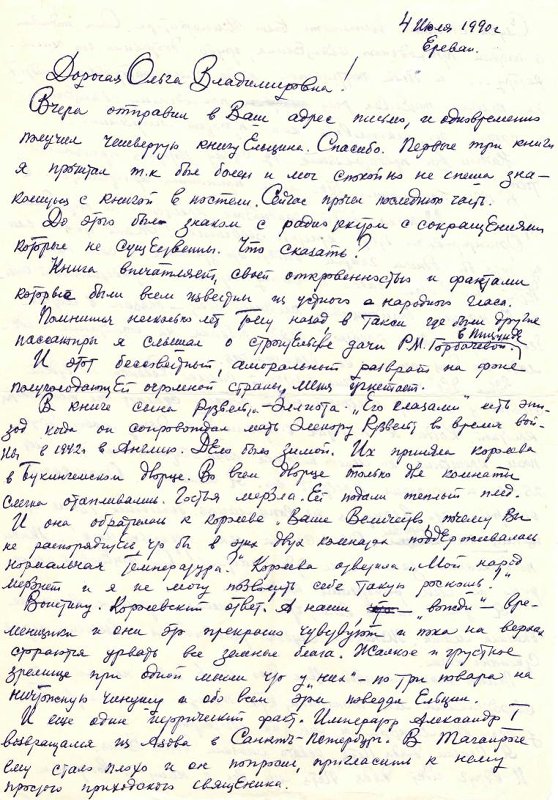 4 Июля 1990г
Ереван.
Дорогая Ольга Владимировна!
Вчера отправил в Ваш адрес письмо, и одновременно
получил четвертую книгу Ельцина. Спасибо. Первые три книги
я прочитал т.к был болен и мог спокойно не спеша зна-
комиться с книгой в постели. Сейчас прочел последнюю часть.
До этого был знаком с радио с сокращениями
которые не существенны. Что сказать?
Книга впечатляет, своей откровенностью и фактами
которые были всем известны из устного а народного гласа.
Помнишься несколько лет тому назад в такси где были другие
пассажиры я слышал о строительстве дачи Р.М. Горбачевой. в Пицунде
И этот бессовестный, аморальный разврат на фоне
полуголодающей огромной страны, меня угнетает.
В книге сына Рузвельта - Эллиота. „Его глазами" есть эпи-
зод когда он сопровождал мать Элеонору Рузвельт во время вой-
ны в 1942г в Англию. Дело было зимой. Их приняла королева
в Букингемском дворце. Во всем дворце только две комнаты
слегка отапливались. Гостья мерзла. Ей подали теплый плед.
И она обратилась к королеве „Ваше Величество, почему Вы
не распорядитесь, что бы в этих двух комнатах поддерживалась
нормальная температура?" Королева ответила „Мой народ
мерзнет и я не могу позволить себе такую роскошь."
Воистину. Королевский ответ. А наши „вожди" – вре-
менщики и они это прекрасно чувствуют и пока на верхах
стараются урвать все земные блага. Жалкое и грустное
зрелище при одной мысли что у „них" - по три повара на
ничтожную чинушу а обо всем этом поведал Ельцин.
И еще один исторический факт. Император Александр I
возвращался из Азова в Санктъ-Петербург. В Таганроге
ему стало плохо и он попросил, пригласить к нему
простого приходского священика.